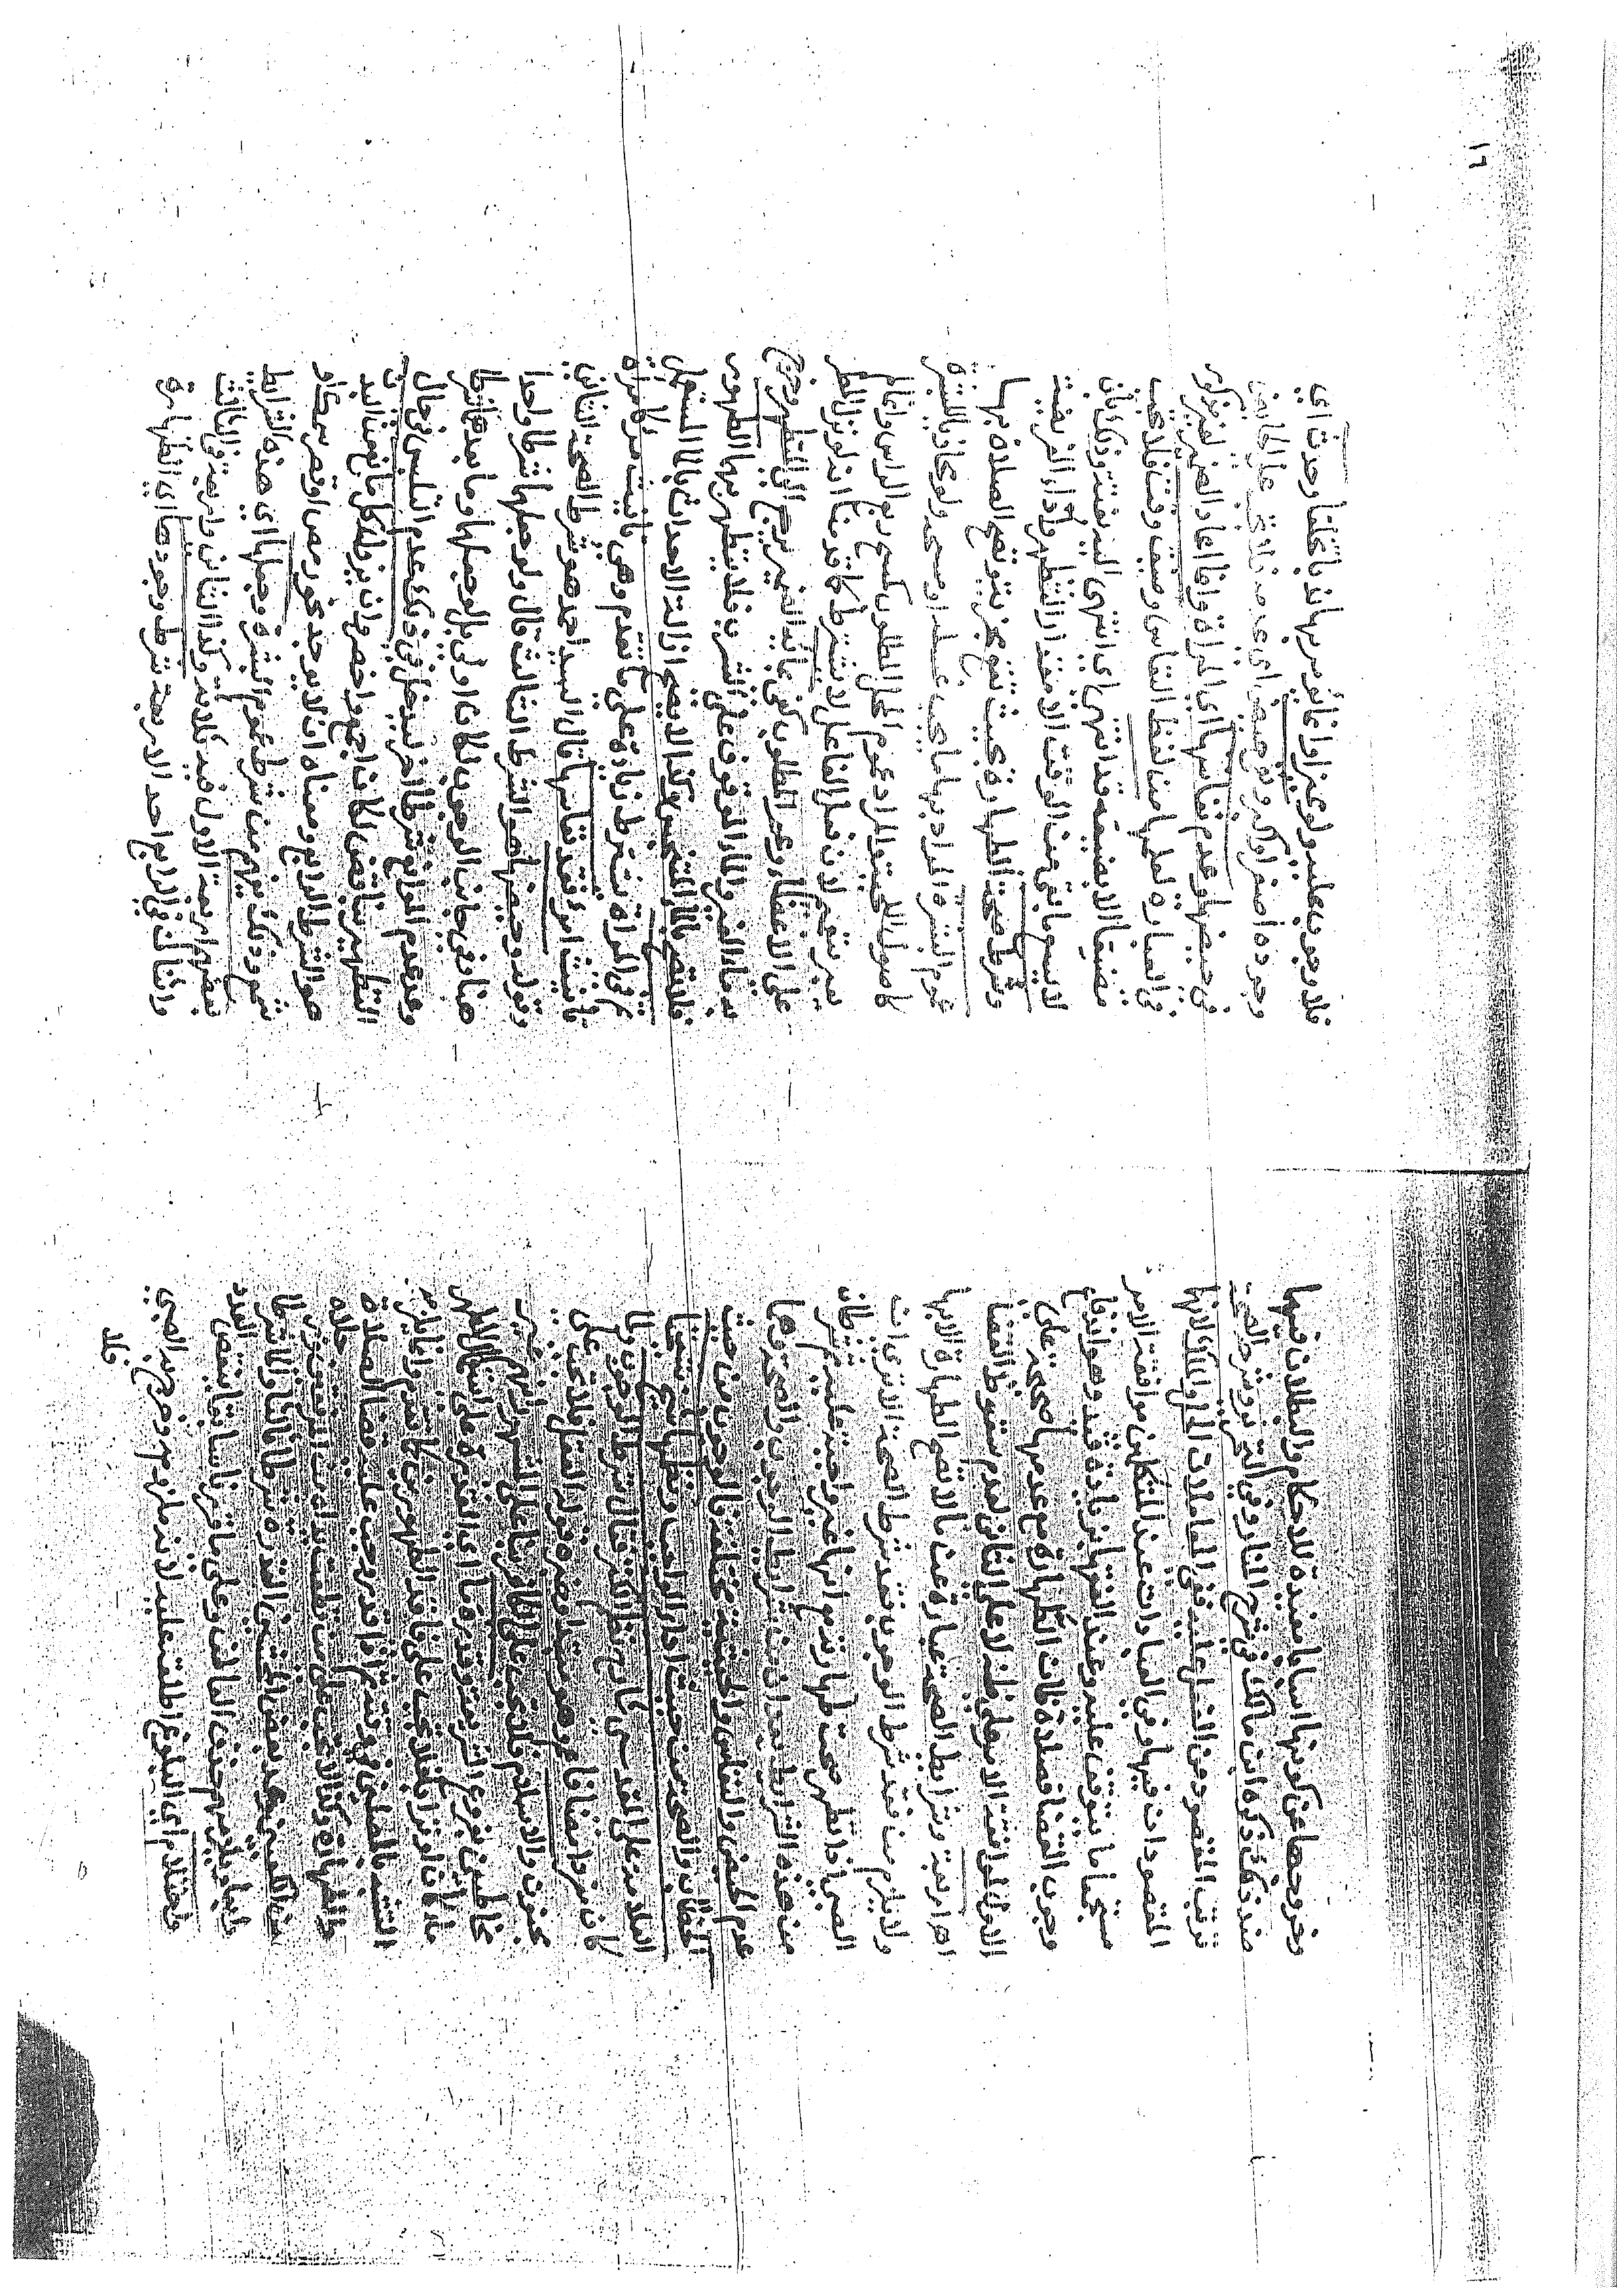 وخروجها عن كونها اسبابا مفيدة للاحكام والبطلان فيها
ضد ذلك ذكره ابن مالك في شرح المنار وفي التحرير وشرحه الصحة
ترتب المقصود من الفعل عليه ففي المعاملات الحل والملك لانها
المقصودان فيها وفي العبادات عند المتكلمين موافقة الامر
مستجمعا ما يتوقف عليه وعند الفقهاء بزيادة قيد وهو اندفاع
وجوب القضا فصلاة ظان الطهارة مع عدمها صحيحة على
الاول لموافقة الامر على ظنه لا على الثاني لعدم سقوط القضا
اهـ اربعة وشرايط الصحة عبارة عن ما لا تصح الطهارة الا بها
ولا يلزم من فقد شرط الوجوب فقد شرط الصحة الا ترى ان
الصبي اذا تطهر صحت طهارته مع انها غير واجبة عليه
من هذه الشرايط يعد ان من شرايط الوجوب والصحة وهما
عدم الحيض والنفاس والحيثية مختلفة فالوجوب من حيث
الخطاب والصحة من حيث اداء الواجب ونظمها شيخ شيخنا
العلامة على المقدسي كما في نظم الكنز فقال شرط الوجوب
كان من وا مقتضا عا وهو حدث او ضرة قوله العقل فلا تجب على
مجنون والاسلام فلا تجب على كافر بنا على المشهور انهم غير
مخاطبين بفروع الشريعة وقدرة ماء اي القدرة على استعمال المطهر
ماء كان او ترابا فلا تجب على فاقد الطهورين كما تقدم وانما يلزمه
التشبه بالمصلين في وقته واذا قدر وجب عليه قضا الصلاة
بالطهارة وكذا لا تجب على من قطعت يداه من المرفقين ورجلاه
من الكعبين وعد بعض المحققين القدرة شرطا والماء الكافي شرطا
رابعا ويلزمهم حذف الكافي وعلى ما قررناه سابقا ينقص العدد
واحتلام اي البلوغ اطلقه عليه لانه ملزومه وخرج به الصبي
فلا
فلا وجوب عليه ولو مميزا وانما يؤمر بها تخلقا وحدث اي
وجوده اصغر او اكبر وعدم حيض اي عدمه فلا تجب على الحايض
في حيضها وعدم نفاسها اي المراة وانما اعاد الضمير لغير مذكور
في العبارة لعلمها من لفظ النفاس وضيق وقت فلا يجب
مضيقا الا بضيقه قد انتهى اي انتهى اليه بغتة وذلك بان
لا يسع ما بقي من الوقت الا مقدار التطهر واداء الفريضة
وشرط صحة الطهارة بحيث تقع مجزية وتصح الصلاة بها
عموم البشرة المراد بها ما يجب غسله او مسحه ولو مجازا بالبشرة
كاصول اللحية والمراد عموم المحل المطلوب كمسح ربع الراس وانما لم
يعبر بتعميم لان فعل الفاعل لا يشترط كما قدمناه انه لو نزل المطر
على الاعضاء وعم المطلوب كفى عائد الضمير يرجع الى التطهر وخرج
به ماء الغير والماء الموقوف على الشرب فلا يتطهر بهما الطهور
فلا تصح بالماء المتنجس وكذا لا تصح ازالة الاحداث بالماء المستعمل
ثم في المراة يشترط زيادة على ما تقدم وهي بانيث مرء كامراة
فانيث امرؤ فقد نفاسها قال السيد احمد هو شرط الصحة الثاني
وقوله وحيضها هو الشرط الثالث قال ولو جعلهما شرطا واحدا
هنا وفي جانب الوجوب لكان اولى بل لو جعلهما وما بعدهما شرطا
وهو عدم الموانع شرطا اخر ليدخل في ذلك عدم التلبس في حال
التطهير بناقض لكان اجمع واخصر وان يزول كل مانع عن البدن
هو الشرط الرابع ومعناه ان لا يوجد نحو رمص او قشر سمك او
شمع وذلك يفهم من شرط عموم البشرة وجعلها اي هذه الشرايط
بعضهم اربعة الاول فيه ثلاثة وكذا الثاني واربعة في الثالث
واثنان في الرابع احد الاربعة شرط وجودها اي الطهارة